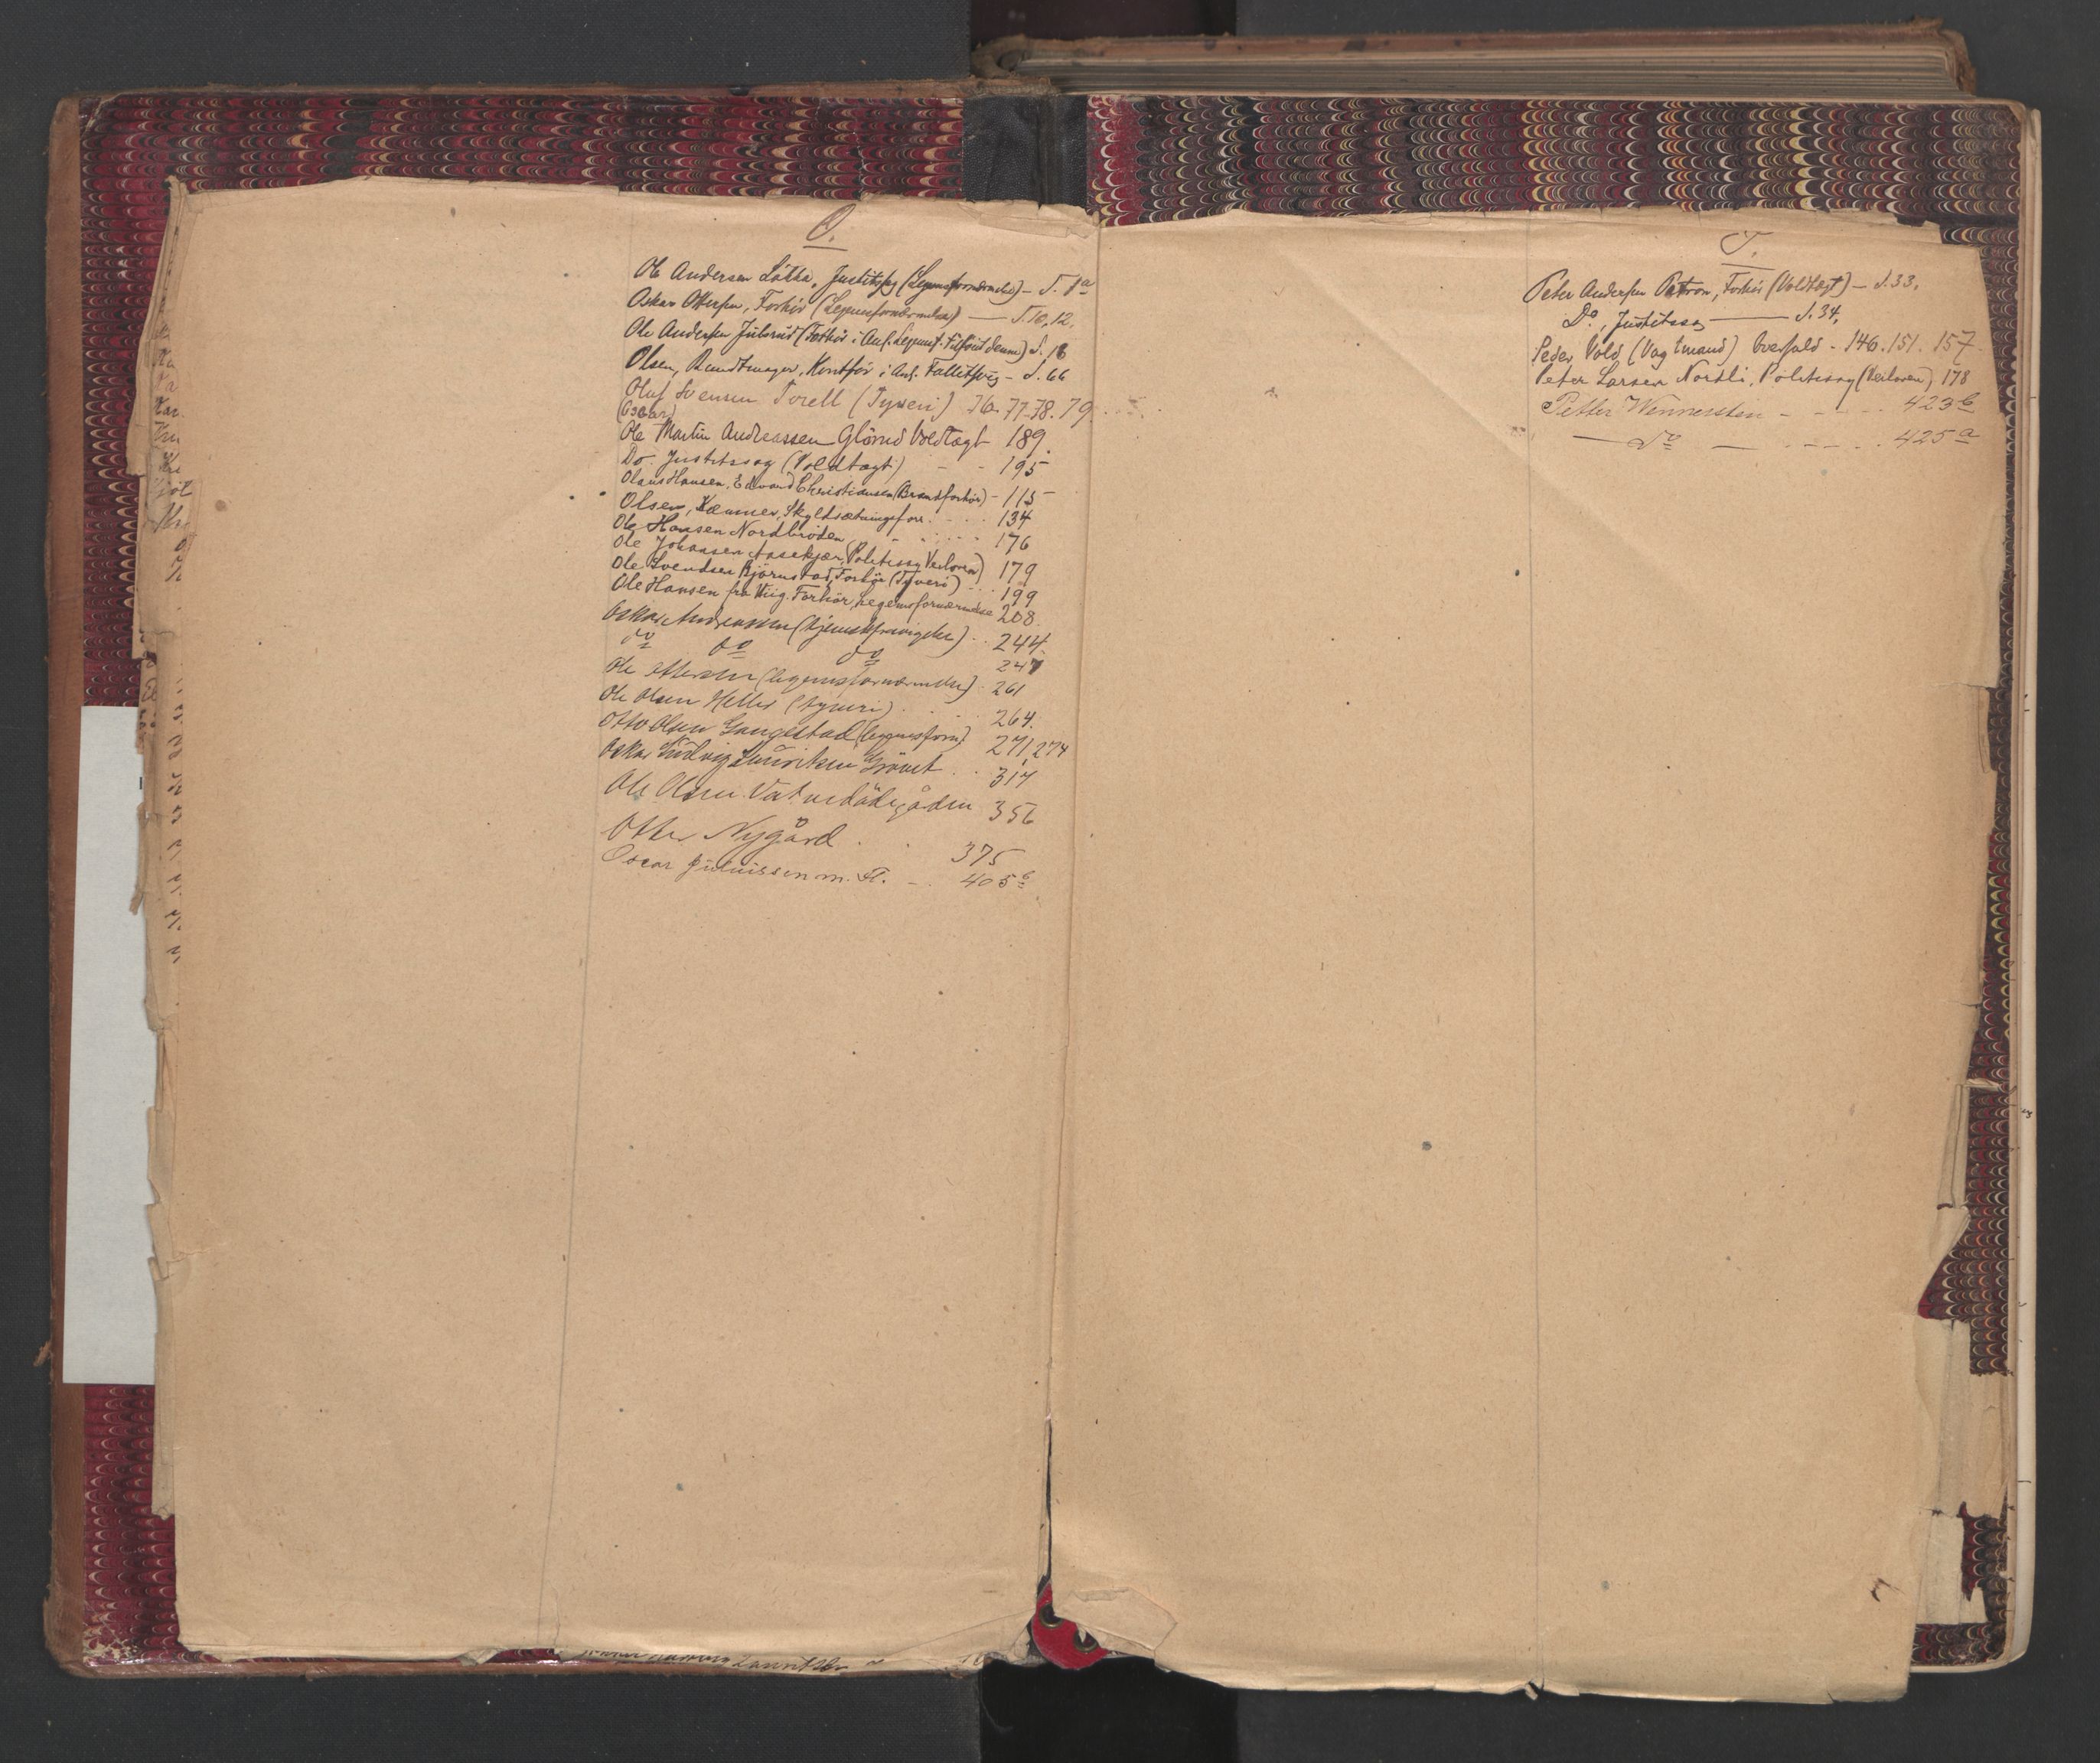 O.
Ole Andersen Løkka, Justitssag (Legemsfornærmelse) – S. 1a
Oskar Ottersen, Forhør (Legemsfornærmelse) — S. 10, 12.
Ole Andersen Julsrud (Forhør i Anl. Legemsf. tilføiet denne) S. 18
Olsen, Buntmager, Kontfør i Anl. Fallitsag – S. 66
Oluf Svensen Torell (Tyveri) 76. 77. 78. 79.
(Oscar)
Ole Martin Andreassen Glörud Voldtægt 189.
Do. Justitssag (Voldtægt) - - 195
Olaus Hansen, Edvard Christiansen (Brandforhør) - 115
Olsen, Kæmner, Skyldsætningsforr. - . . 134
Ole Hansen Nordbröden - . . . 176
Ole Johansen Aasekjær, Politisag Veiloven) 179
Ole Svendsen Bjørnstad, Forhør (Tyveri) . . 199
Ole Hansen fra Viig. Forhör, legemsfornærmelse 208.
Oskar Andreassen (tjenestefravigelse) . . 244.
do do do 247
Ole Ottersen (legemsfornærmelse) . 261
Ole Olsen Heller (tyveri) . . . 264.
Otto Olsen Gangestad (legemsforn.) 271, 274
Oskar Ludvig Lauritsen Grönet . . 317
Ole Olsen 356
Otter Nygård . . 375
Oscar m. fl. - . 405b
P.
Peter Andersen Patron, Forhør (Voldtægt) – S. 33.
Do, Justitssag — S. 34.
Peder Vold (Vagtmand) Overfald - 146. 151. 157
Peter Larsen Nordli, Politisag (Veiloven) 178
Petter Wennersten - - - - . 423b
— do — - - - - . 425a